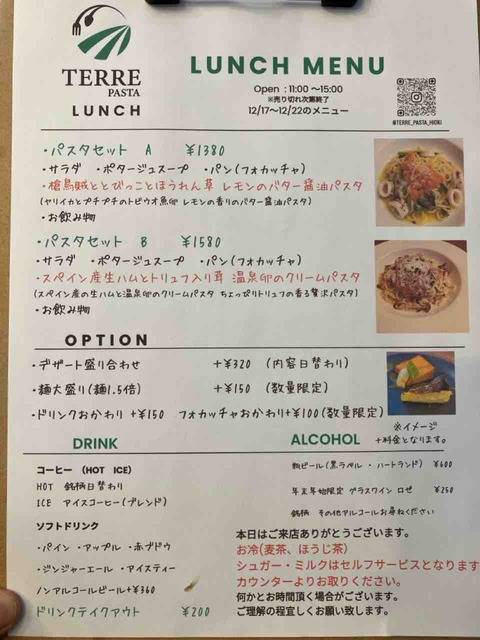 TERRE
PASTA
LUNCH
LUNCH MENU
Open : 11:00 〜15:00
※売り切れ次第終了
12/17〜12/22のメニュー
@TERRE_PASTA_HIOKI
・パスタセット A ¥1380
・サラダ ・ポタージュスープ ・パン(フォカッチャ)
・槍烏賊ととびっことほうれん草 レモンのバター醤油パスタ
(ヤリイカとプチプチのトビウオ魚卵 レモンの香りのバター醤油パスタ)
・お飲み物
・パスタセット B ¥1580
・サラダ ・ポタージュスープ ・パン(フォカッチャ)
・スペイン産生ハムとトリュフ入り茸 温泉卵のクリームパスタ
(スペイン産の生ハムと温泉卵のクリームパスタ ちょっぴりトリュフの香る贅沢パスタ)
・お飲み物
OPTION
・デザート盛り合わせ +¥320 (内容日替わり)
・麺大盛り(麺1.5倍) +¥150 (数量限定)
・ドリンクおかわり +¥150 フォカッチャおかわり+¥100(数量限定)
※イメージ
+料金となります。
DRINK
コーヒー (HOT ICE)
HOT 銘柄日替わり
ICE アイスコーヒー(ブレンド)
ソフトドリンク
・パイン ・アップル ・赤ブドウ
・ジンジャーエール ・アイスティー
ノンアルコールビール+¥360
ドリンクテイクアウト ¥200
ALCOHOL
瓶ビール(黒ラベル ・ ハートランド) ¥600
年末年始限定 グラスワイン ロゼ ¥250
銘柄 その他アルコールお尋ねください
本日はご来店ありがとうございます。
お冷(麦茶、ほうじ茶)
シュガー・ミルクはセルフサービスとなります
カウンターよりお取りください。
何かとお時間頂く場合がございます。
ご理解の程宜しくお願い致します。